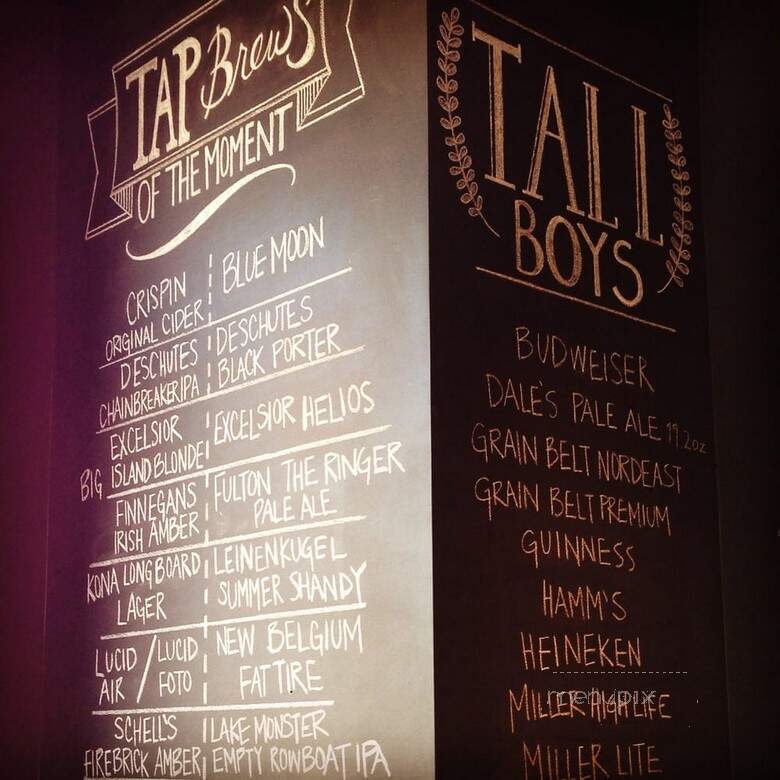 TAP Brews
OF THE MOMENT
CRISPIN
ORIGINAL CIDER
BLUE MOON
DESCHUTES
CHAINBREAKER IPA
DESCHUTES
BLACK PORTER
EXCELSIOR
BIG ISLAND BLONDE
EXCELSIOR HELIOS
FINNEGANS
IRISH AMBER
FULTON THE RINGER
PALE ALE
KONA LONGBOARD
LAGER
LEINENKUGEL
SUMMER SHANDY
LUCID / LUCID
AIR FOTO
NEW BELGIUM
FAT TIRE
SCHELL'S
FIREBRICK AMBER
LAKE MONSTER
EMPTY ROWBOAT IPA
TALL
BOYS
BUDWEISER
DALE'S PALE ALE 19.2oz
GRAIN BELT NORDEAST
GRAIN BELT PREMIUM
GUINNESS
HAMM'S
HEINEKEN
MILLER HIGH LIFE
MILLER LITE
menupix